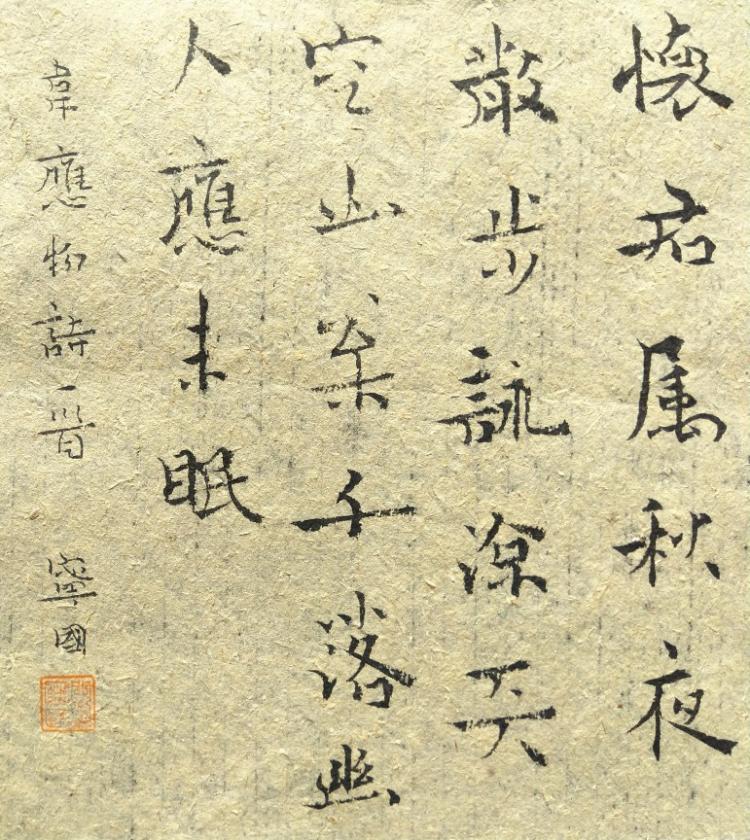 懷君属秋夜
散步詠涼天
空山枀子落幽
人應未眠
韋應物詩一首 寧國